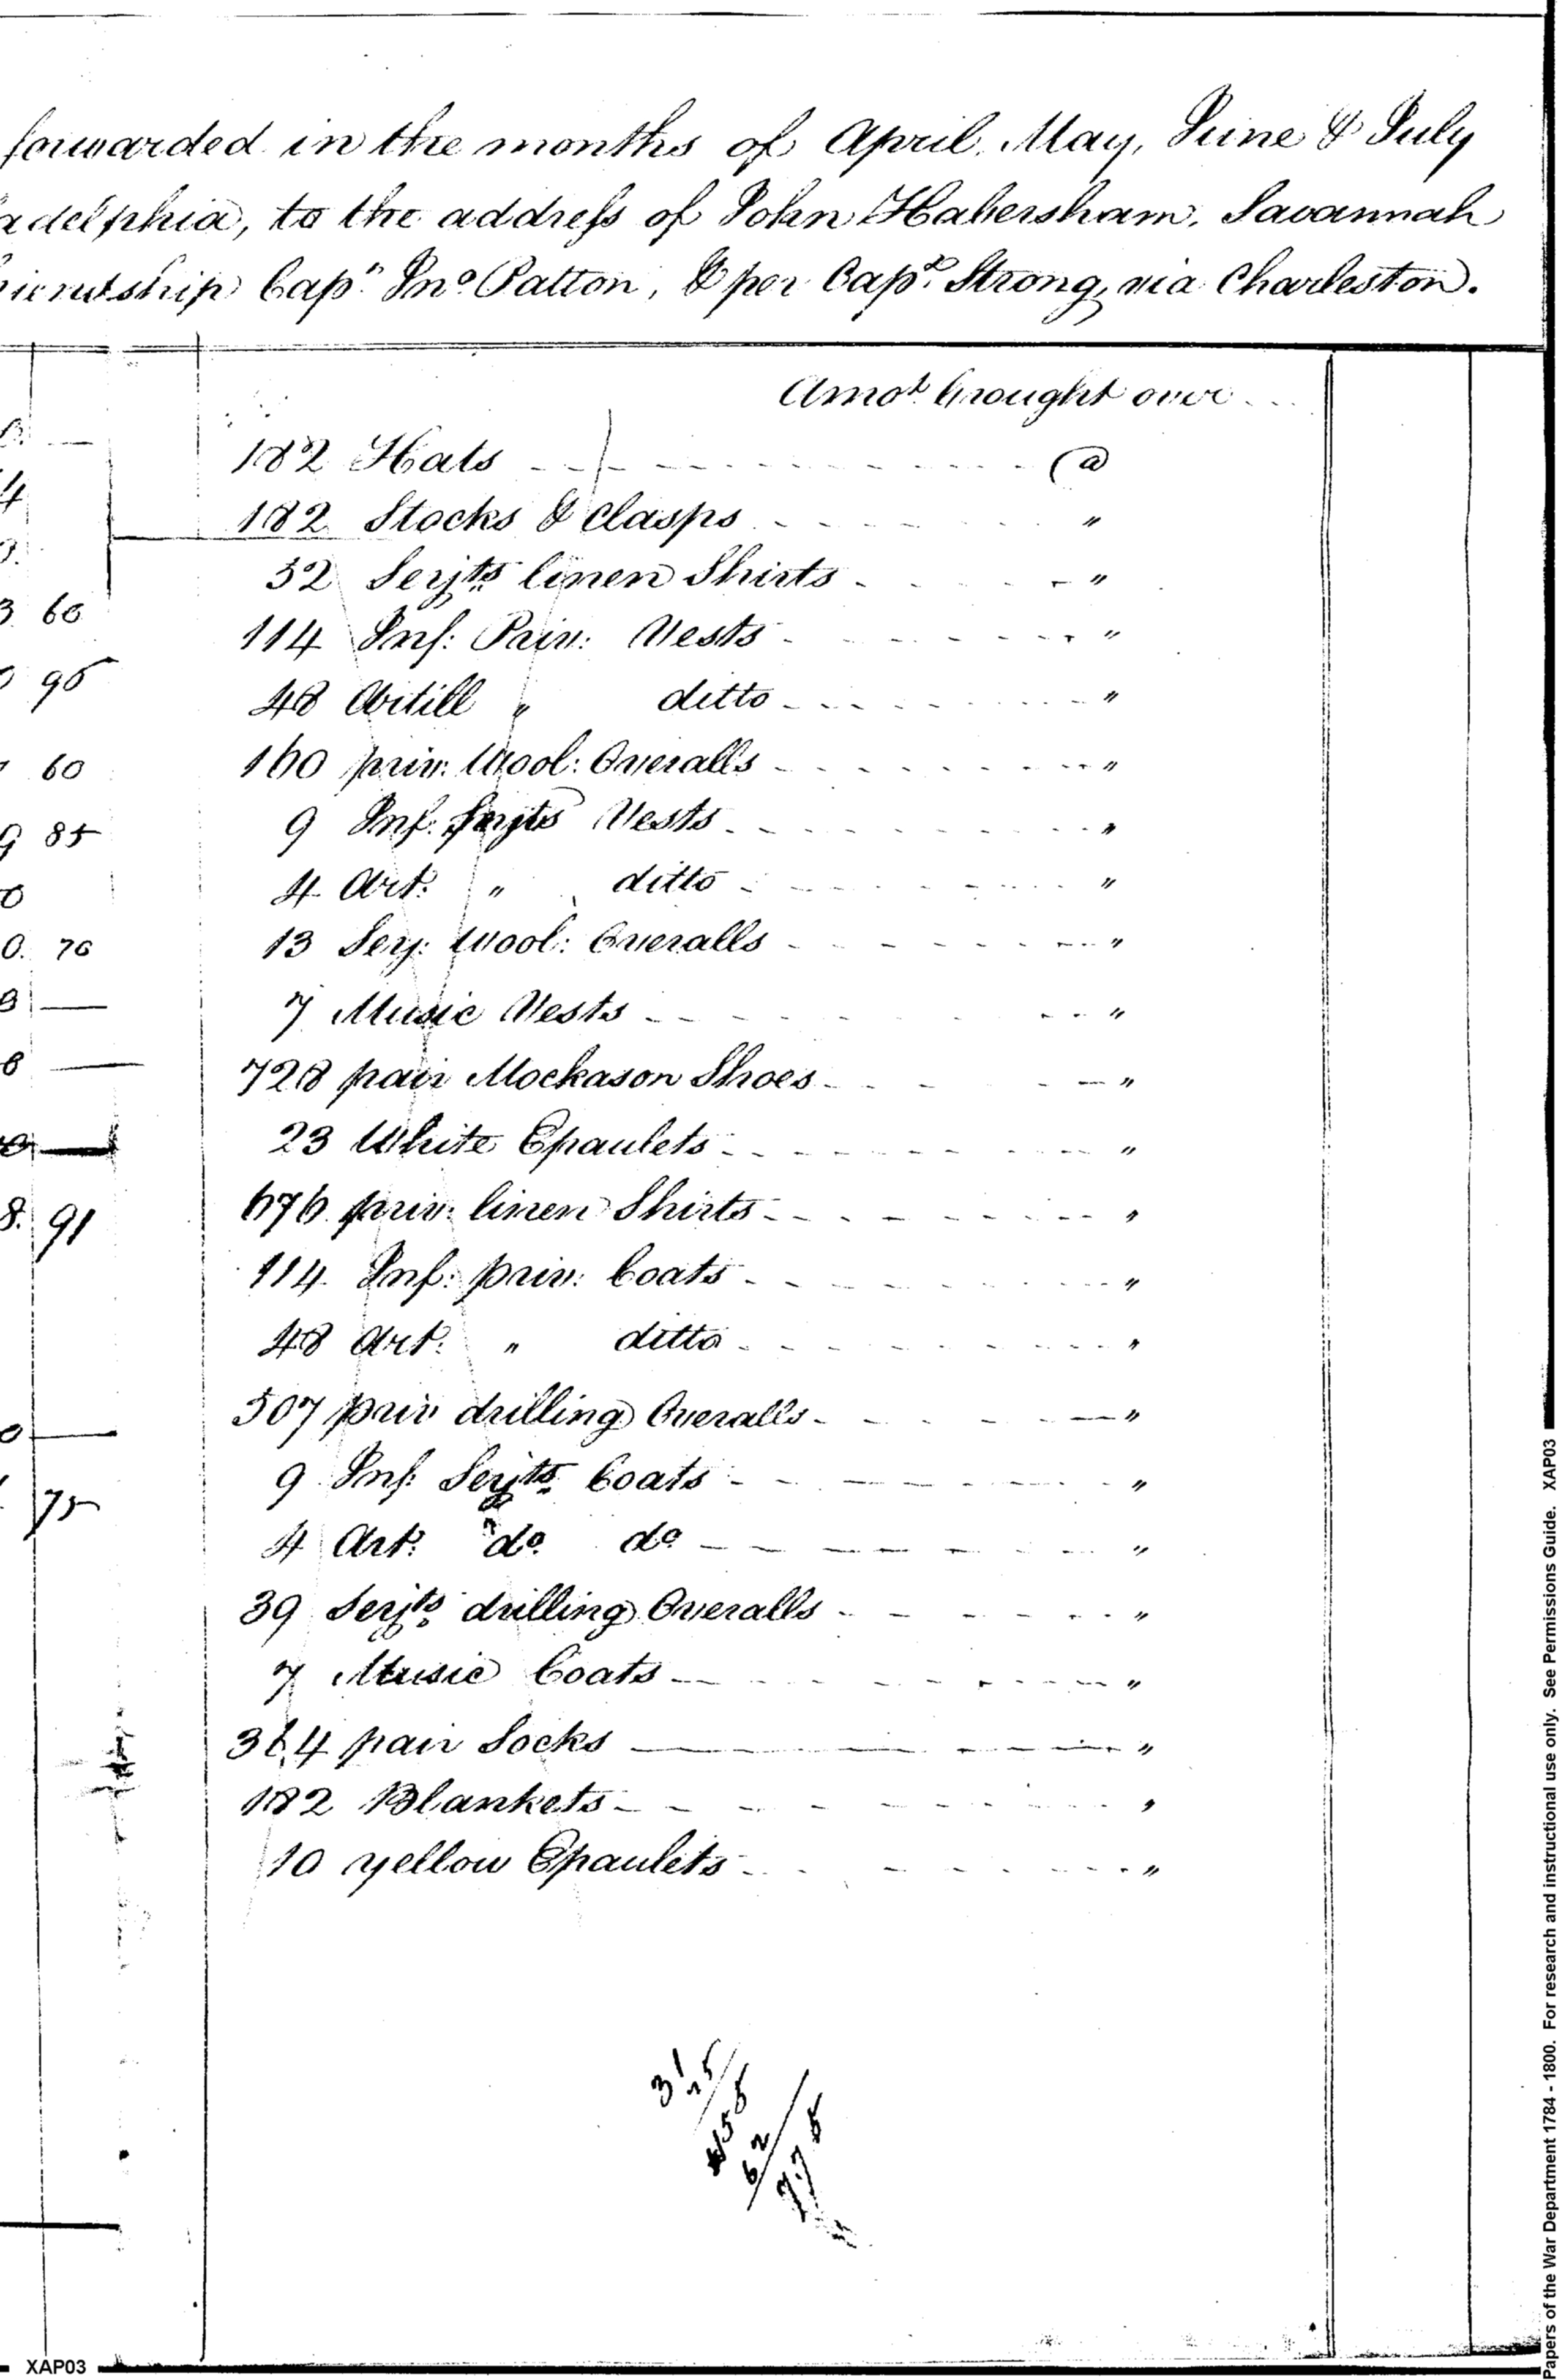 forwarded in the months of April, May, June & July
adelphia, to the address of John Habersham, Savannah
iendship Capn. Jno. Patton, & per Capt. Strong, via Charleston.
Amot. brought over
182 Hats @
4
182 Stocks & Clasps "
52 Serjts. linen Shirts "
3 60
114 Inf: Priv: Vests "
0 95
48 Artill " ditto "
60
160 priv: Wool: Overalls "
9 85
9 Inf: Serjts Vests "
0
4 Art: " ditto "
0. 76
13 Serj: Wool: Overalls "
3
7 Music Vests "
6
728 pair Mockason Shoes "
23 White Epaulets "
8. 91
676 priv: linen Shirts "
114 Inf: priv: Coats "
48 Art: " ditto "
507 priv drilling Overalls "
9 Inf: Serjts. Coats "
75
4 Art: do. do "
39 Serjts. drilling Overalls "
7 Music Coats "
364 pair Socks "
182 Blankets "
10 yellow Epaulets "
XAP03
Papers of the War Department 1784 - 1800. For research and instructional use only. See Permissions Guide. XAP03